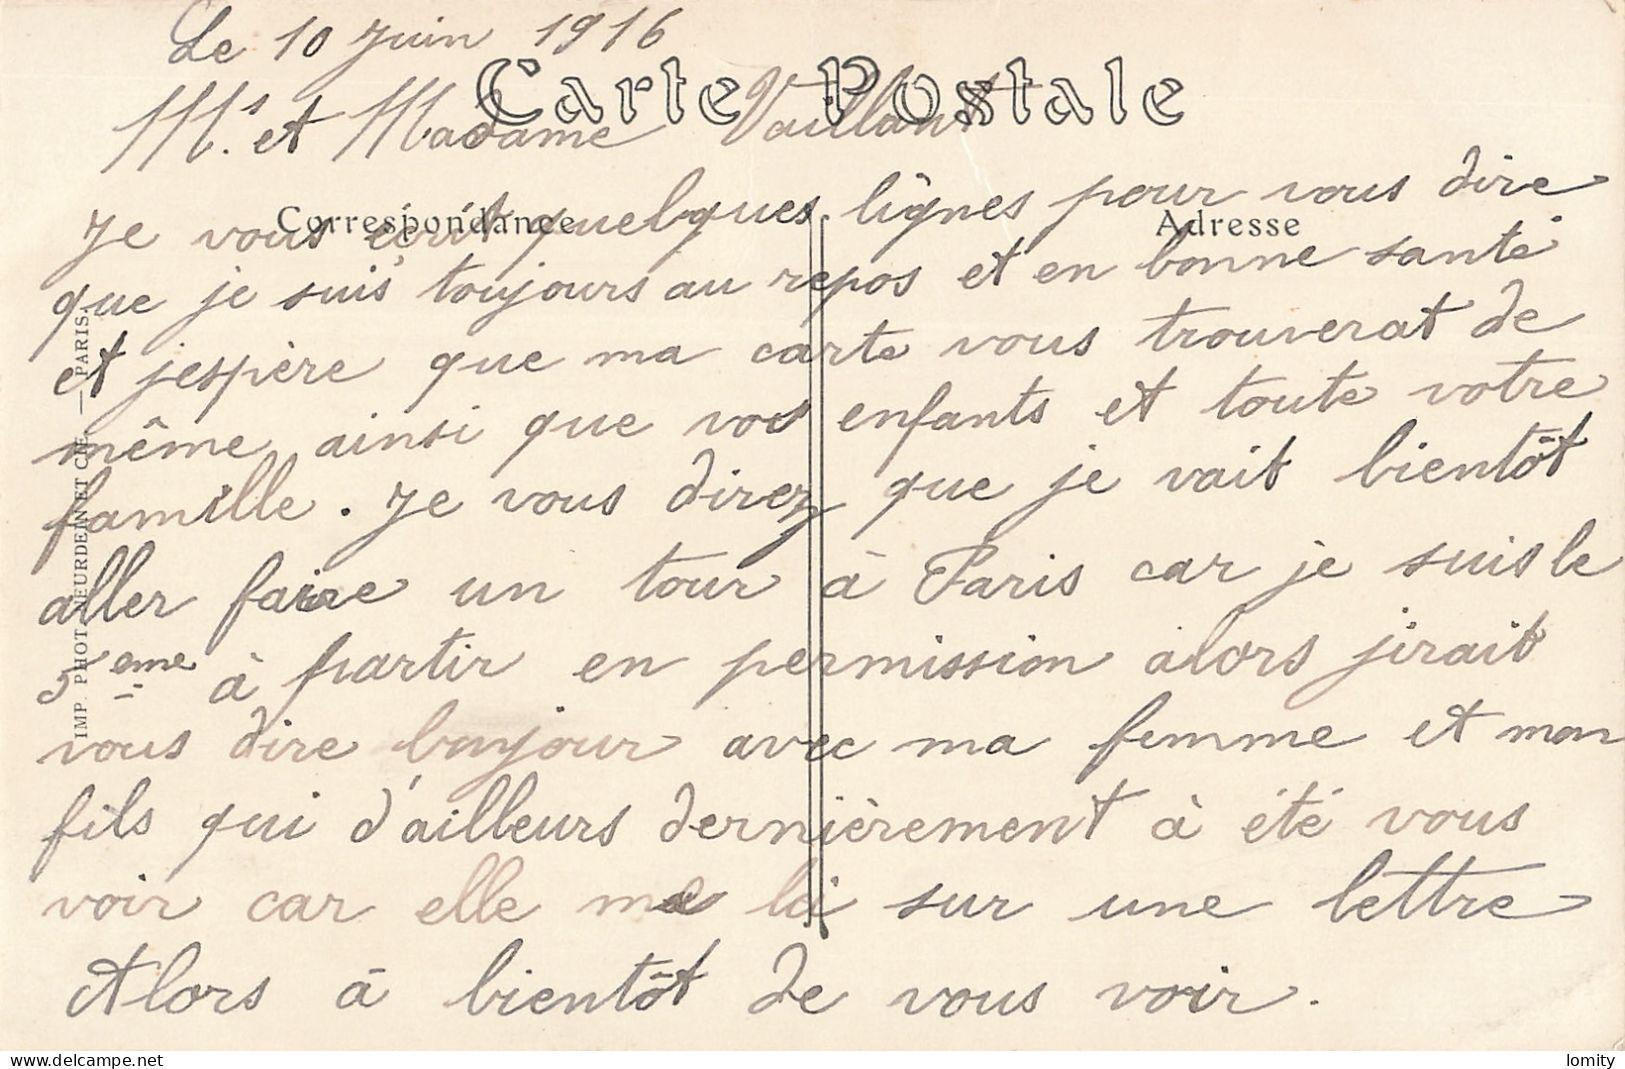 Le 10 Juin 1916
Carte Postale
Mrs. et Madame Vaillant
Correspondance
Adresse
Je vous écrit quelques lignes pour vous dire
que je suis toujours au repos et en bonne santé
et jespère que ma carte vous trouverat de
même ainsi que vos enfants et toute votre
famille. Je vous direz que je vait bientôt
aller faire un tour à Paris car je suis le
5eme à partir en permission alors jirait
vous dire bonjour avec ma femme et mon
fils qui d'ailleurs dernièrement à été vous
voir car elle me la sur une lettre
Alors à bientôt de vous voir.
IMP. PHOT. NEURDEIN ET CIE. — PARIS.
www.delcampe.net
lomity